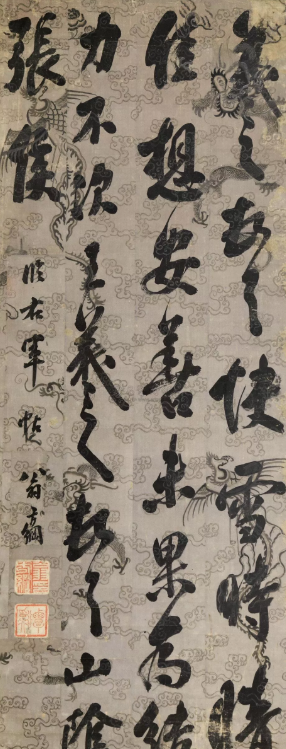 羲之頓首快雪時晴
佳想安善未果為結
力不次王羲之頓首山陰
張侯
臨右軍帖 翁方綱